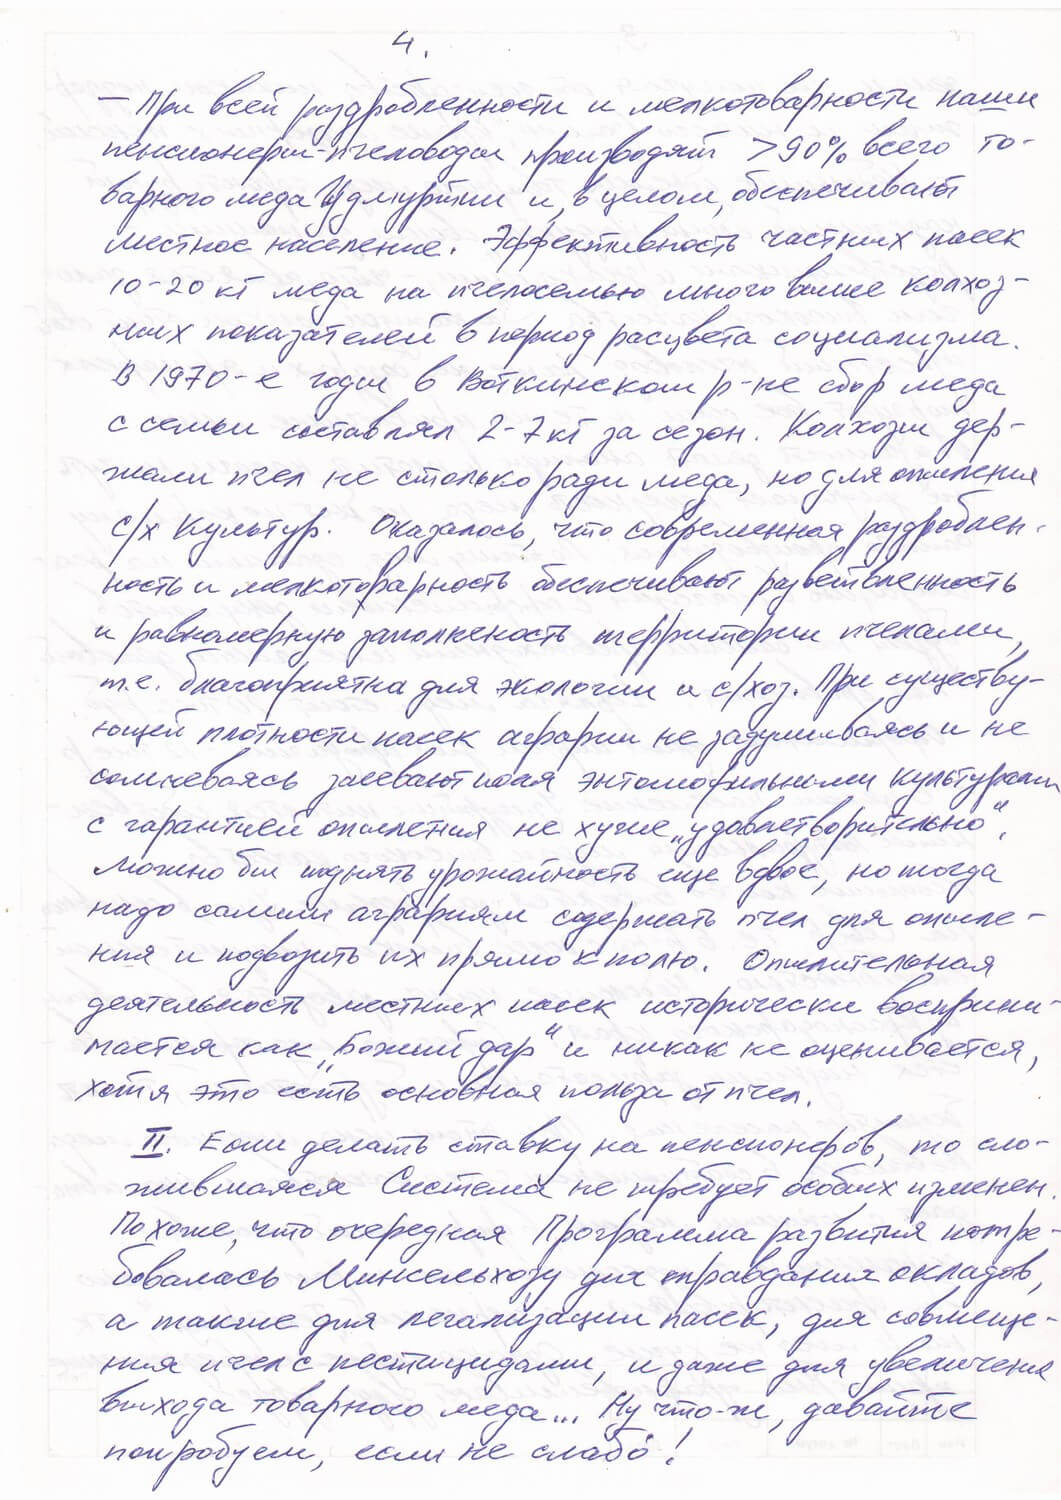 4.
— При всей раздробленности и мелкотоварности наши
пенсионеры-пчеловоды производят >90% всего то-
варного меда Удмуртии и, в целом, обеспечивают
местное население. Эффективность частных пасек
10-20 кг меда на пчелосемью много выше колхоз-
ных показателей в период расцвета социализма.
В 1970-е годы в Воткинском р-не сбор меда
с семьи составлял 2-7 кг за сезон. Колхозы дер-
жали пчел не столько ради меда, но для опыления
с/х культур. Оказалось, что современная раздроблен-
ность и мелкотоварность обеспечивают разветвленность
и равномерную заполненость территории пчелами,
т.е. благоприятна для экологии и с/хоз. При существу-
ющей плотности пасек аграрии не задумываясь и не
сомневаясь засевают поля энтомофильными культурами
с гарантией опыления не хуже „удовлетворительно".
Можно бы поднять урожайность еще вдвое, но тогда
надо самим аграриям содержать пчел для опыле-
ния и подвозить их прямо к полю. Опылительная
деятельность местных пасек исторически восприни-
мается как „Божый дар" и никак не оценивается,
хотя это есть основная польза от пчел.
II. Если делать ставку на пенсионеров, то сло-
жившаяся Система не требует особых изменен.
Похоже, что очередная Программа развития потре-
бовалась Минсельхозу для оправдания окладов,
а также для легализации пасек, для совмеще-
ния пчел с пестицидами, и даже для увеличения
выхода товарного меда... Ну что-ж, давайте
попробуем, если не слабо!